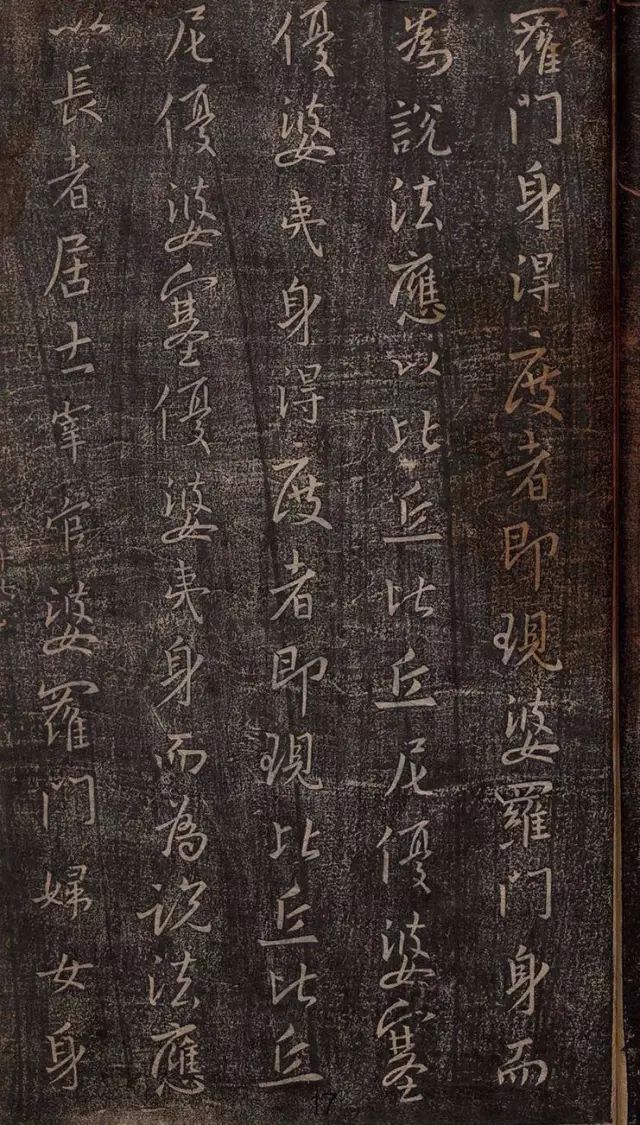 羅門身得度者即現婆羅門身而
為說法應以比丘比丘尼優婆塞
優婆夷身得度者即現比丘比丘
尼優婆塞優婆夷身而為說法應
以長者居士宰官婆羅門婦女身
17